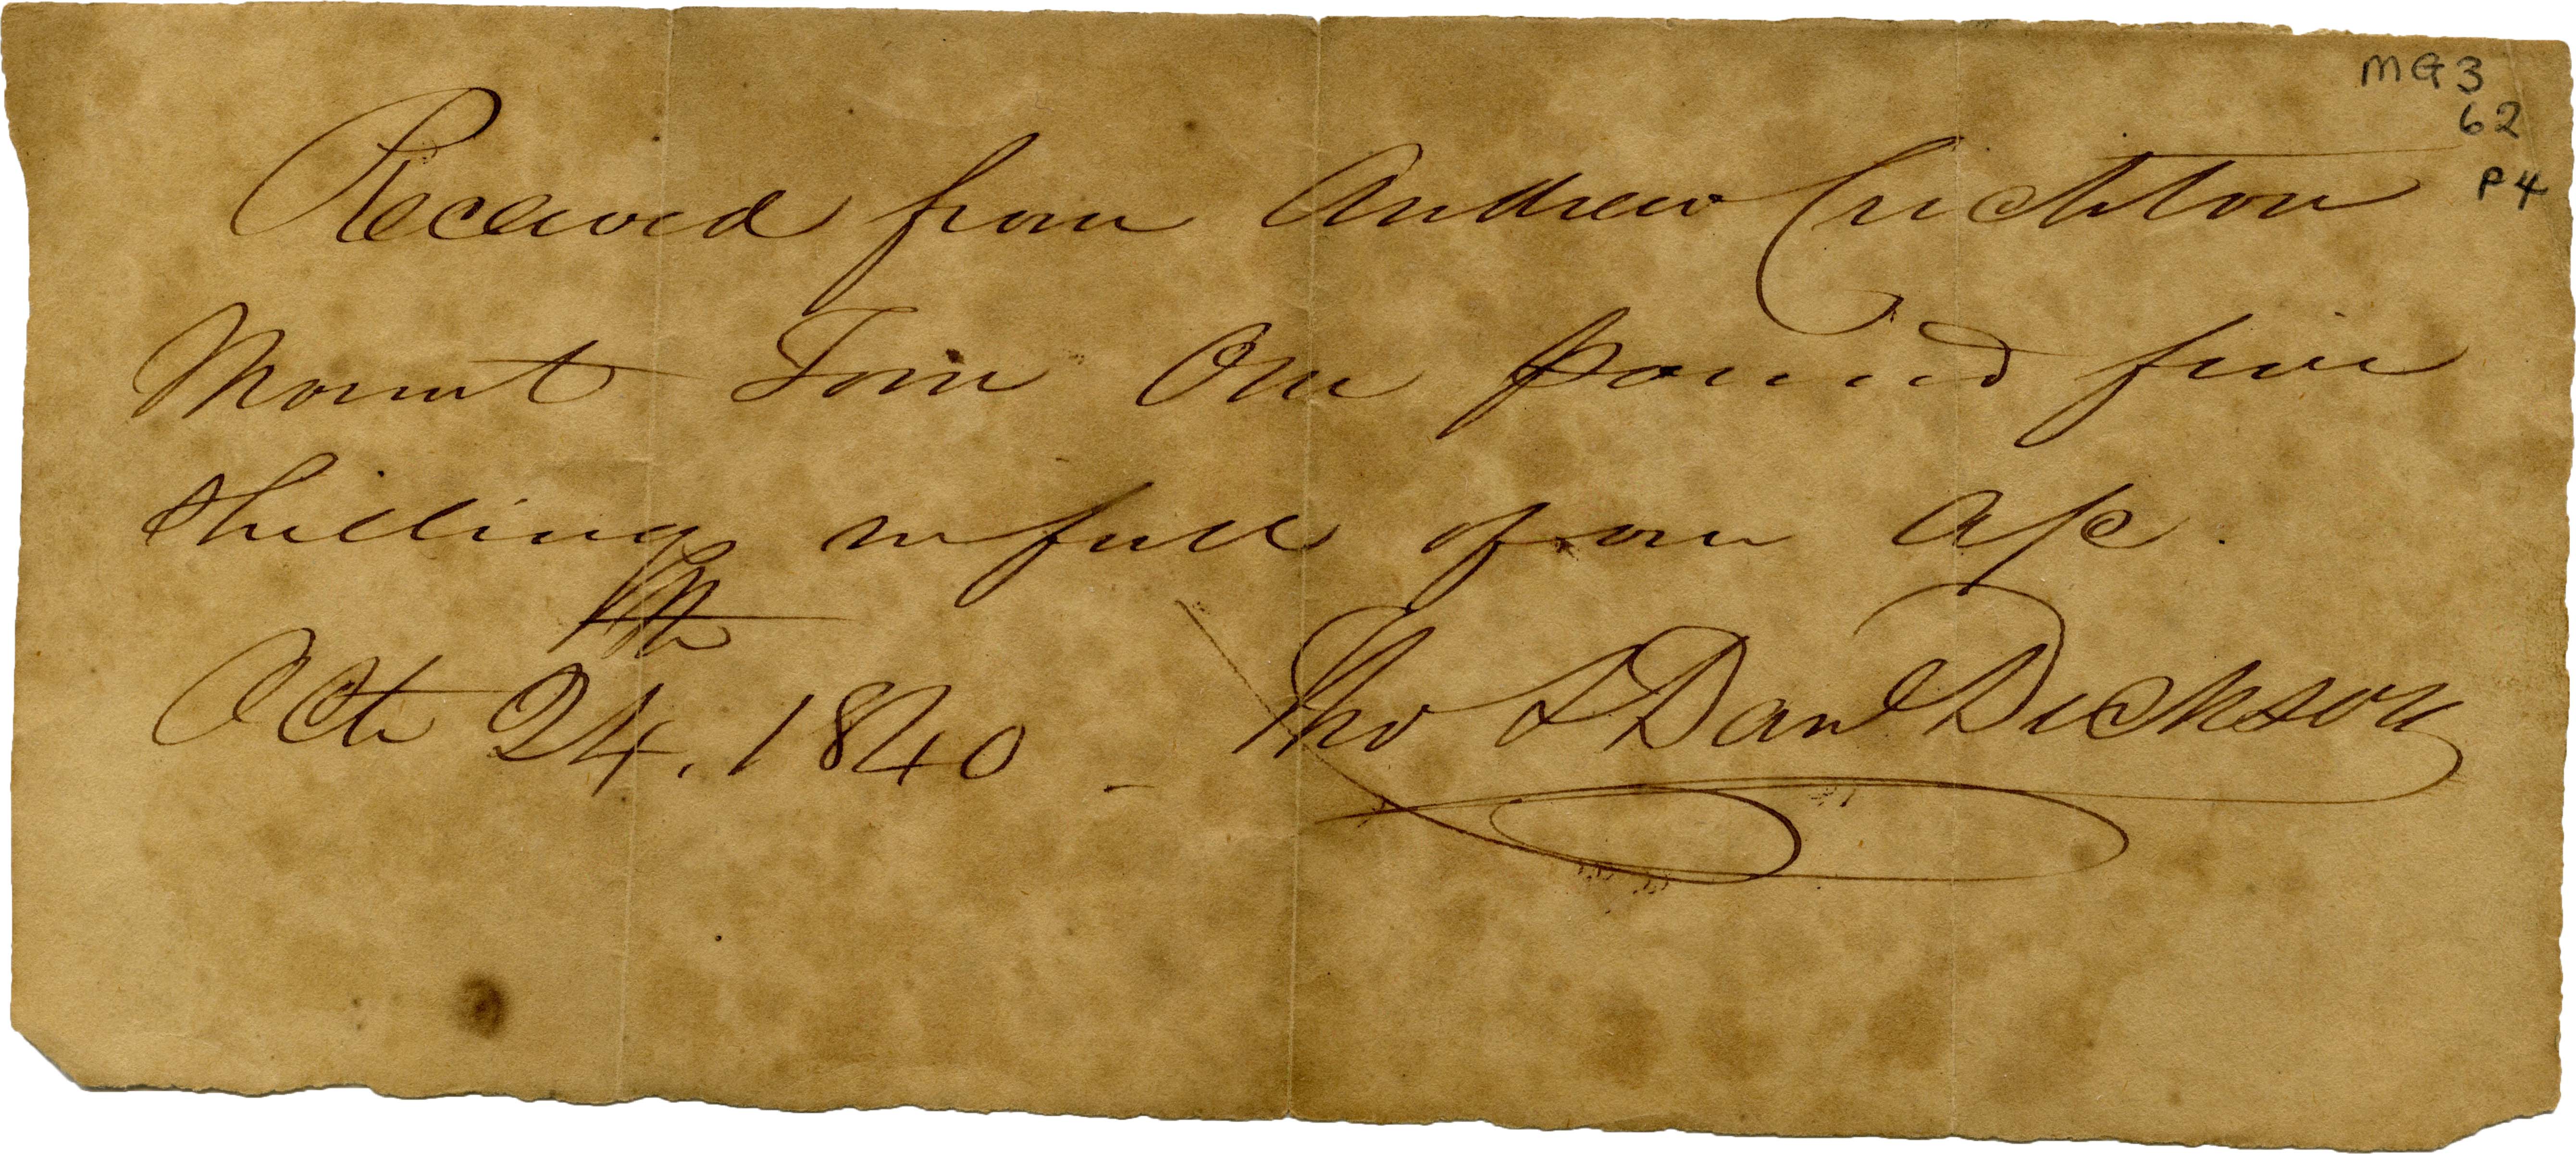 MG3
62
P4
Received from Andrew Crichton
Mount Tom One pound five
Shilling in full of our a/c.
Octr 24th, 1840 - Tho & Danl Dickson